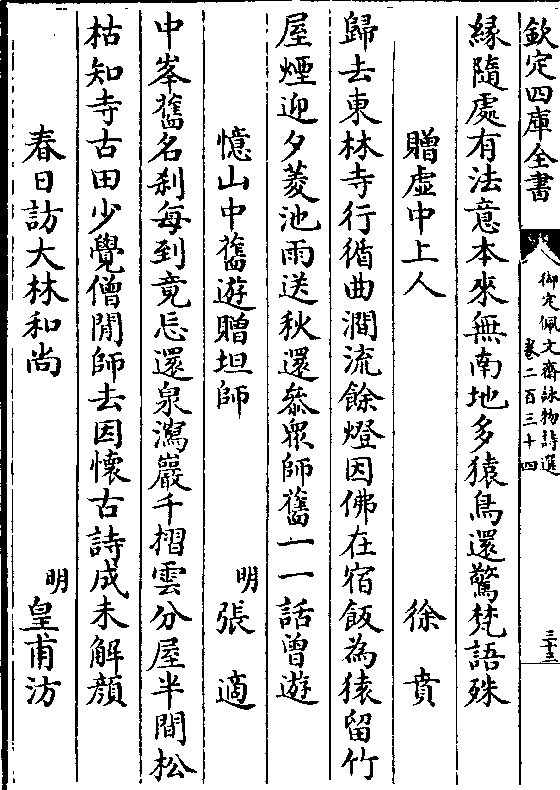 欽定四庫全書
御定佩文齋詠物詩選
卷二百三十四
三十三
縁隨處有法意本來無南地多猿鳥還驚梵語殊
贈虛中上人 徐賁
歸去東林寺行循曲澗流餘燈因佛在宿飯為猿留竹
屋煙迎夕菱池雨送秋還叅衆師舊一一話曽遊
憶山中舊遊贈坦師 明 張適
中峯舊名刹每到竟忘還泉瀉巖千摺雲分屋半間松
枯知寺古田少覺僧閒師去因懷古詩成未解顔
春日訪大林和尚 明 皇甫汸